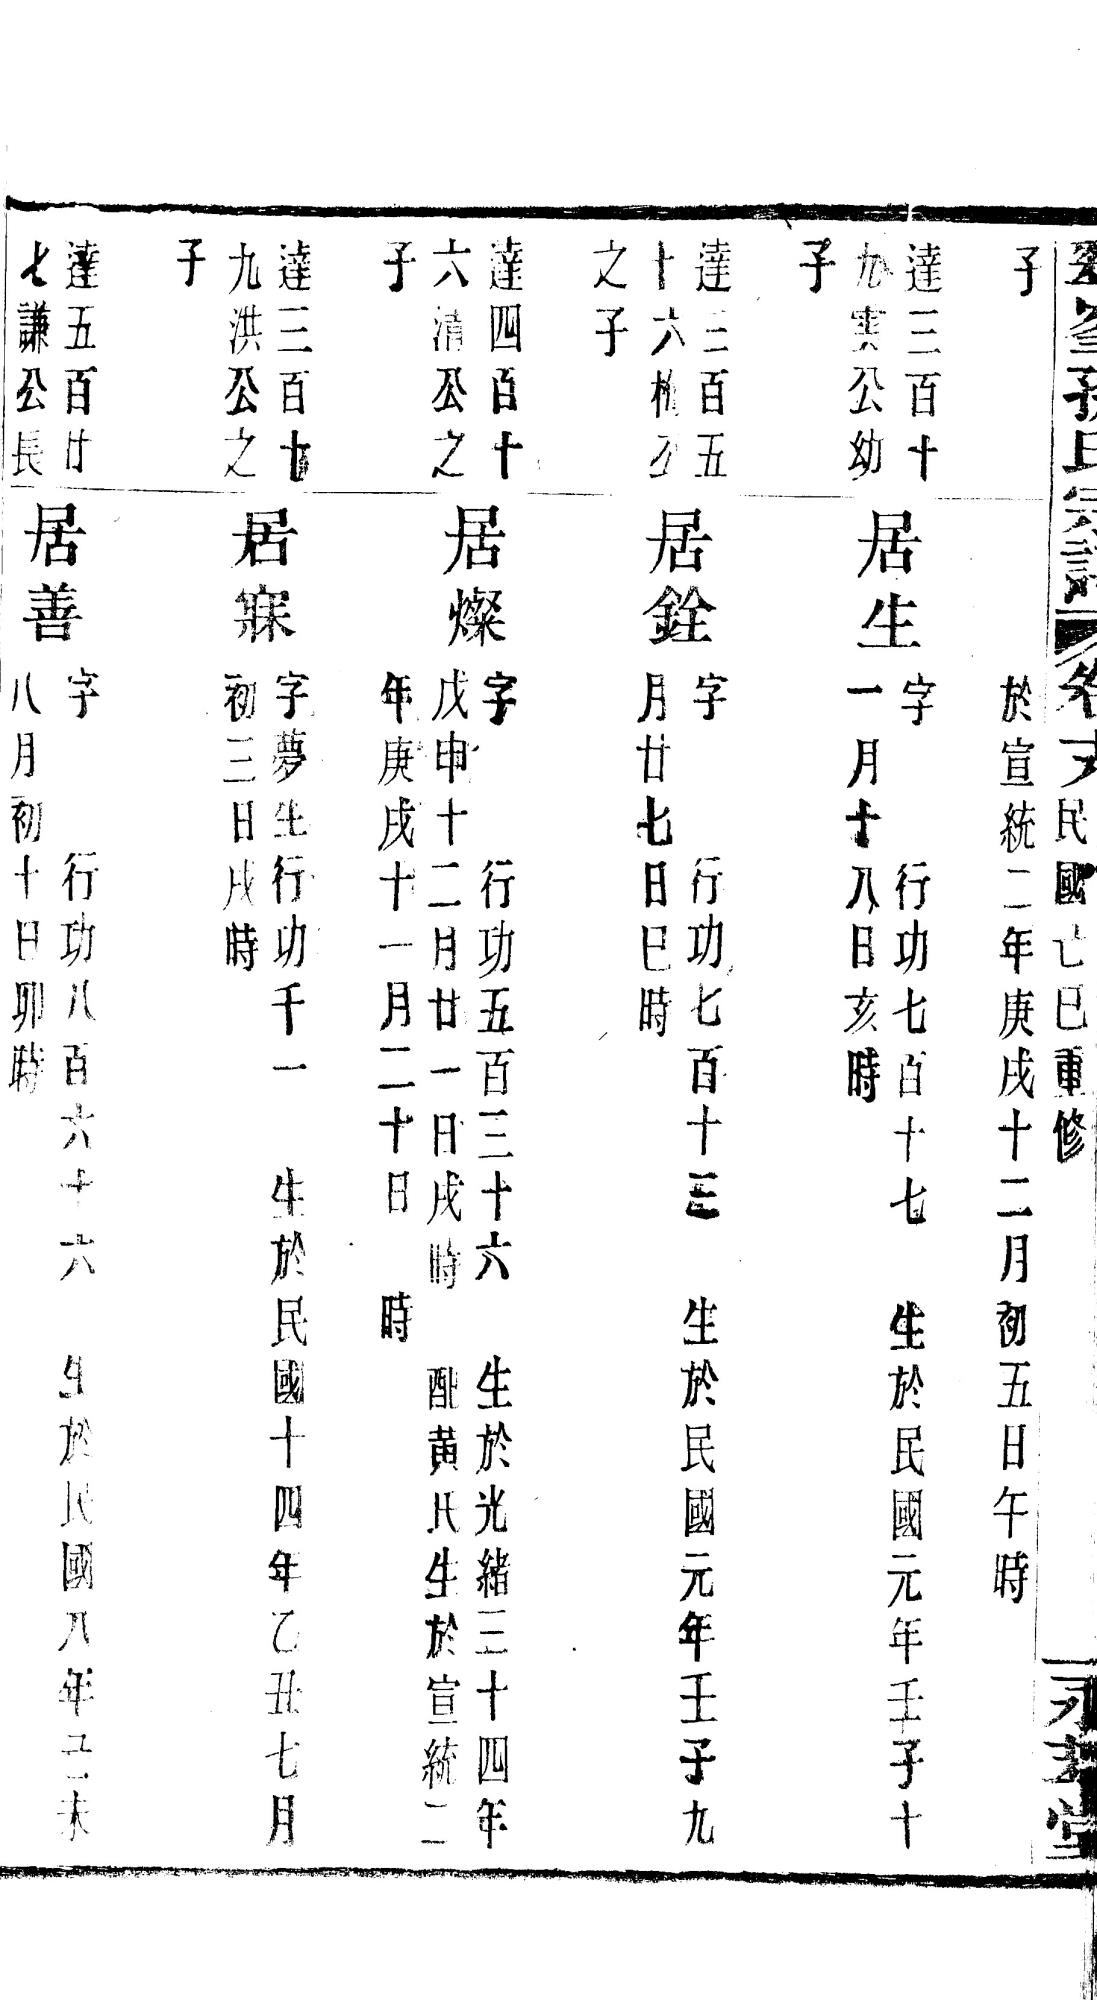 孫氏宗譜 卷 民國己巳重修
堂
子
於宣統二年庚戌十二月初五日午時
達三百十
九寶公幼
子
居生
字 行功七百十七 生於民國元年壬子十
一月十八日亥時
達三百五
十六公
之子
居銓
字 行功七百十三 生於民國元年壬子九
月廿七日巳時
達四百十
六清公之
子
居燦
字 行功五百三十六 生於光緒三十四年
戊申十二月廿一日戌時 配黃氏生於宣統二
年庚戌十一月二十日 時
達三百七
九洪公之
子
居寐
字夢生行功千一 生於民國十四年乙丑七月
初三日戌時
達五百廿
七謙公長
居善
字 行功八百六十六 生於民國八年己未
八月初十日卯時